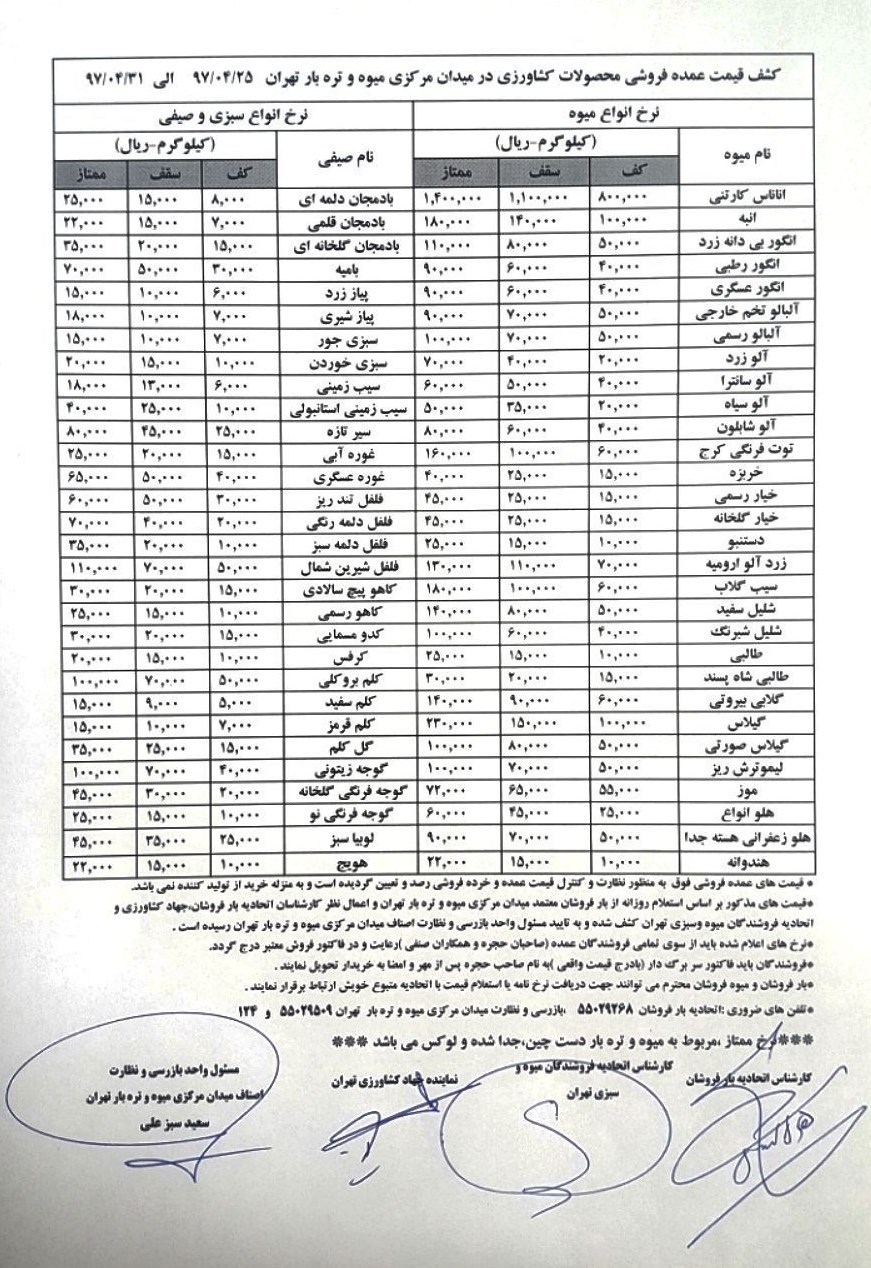 کشف قیمت عمده فروشی محصولات کشاورزی در میدان مرکزی میوه و تره بار تهران ۹۷/۰۴/۲۵ الی ۹۷/۰۴/۳۱
نرخ انواع میوه نرخ انواع سبزی و صیفی
نام میوه (کیلوگرم-ریال) نام صیفی (کیلوگرم-ریال)
کف سقف ممتاز کف سقف ممتاز
اناناس کارتنی ۸۰۰,۰۰۰ ۱,۱۰۰,۰۰۰ ۱,۴۰۰,۰۰۰ بادمجان دلمه ای ۸,۰۰۰ ۱۵,۰۰۰ ۲۵,۰۰۰
انبه ۱۰۰,۰۰۰ ۱۴۰,۰۰۰ ۱۸۰,۰۰۰ بادمجان قلمی ۷,۰۰۰ ۱۵,۰۰۰ ۲۲,۰۰۰
انگور بی دانه زرد ۵۰,۰۰۰ ۸۰,۰۰۰ ۱۱۰,۰۰۰ بادمجان گلخانه ای ۱۵,۰۰۰ ۲۰,۰۰۰ ۳۵,۰۰۰
انگور رطبی ۴۰,۰۰۰ ۶۰,۰۰۰ ۹۰,۰۰۰ بامیه ۳۰,۰۰۰ ۵۰,۰۰۰ ۷۰,۰۰۰
انگور عسگری ۴۰,۰۰۰ ۶۰,۰۰۰ ۹۰,۰۰۰ پیاز زرد ۶,۰۰۰ ۱۰,۰۰۰ ۱۵,۰۰۰
آلبالو تخم خارجی ۵۰,۰۰۰ ۷۰,۰۰۰ ۹۰,۰۰۰ پیاز شیری ۷,۰۰۰ ۱۰,۰۰۰ ۱۸,۰۰۰
آلبالو رسمی ۵۰,۰۰۰ ۷۰,۰۰۰ ۱۰۰,۰۰۰ سبزی جور ۷,۰۰۰ ۱۰,۰۰۰ ۱۵,۰۰۰
آلو زرد ۲۰,۰۰۰ ۴۰,۰۰۰ ۷۰,۰۰۰ سبزی خوردن ۱۰,۰۰۰ ۱۵,۰۰۰ ۲۰,۰۰۰
آلو سانترا ۴۰,۰۰۰ ۵۰,۰۰۰ ۶۰,۰۰۰ سیب زمینی ۶,۰۰۰ ۱۳,۰۰۰ ۱۸,۰۰۰
آلو سیاه ۲۰,۰۰۰ ۳۵,۰۰۰ ۵۰,۰۰۰ سیب زمینی استانبولی ۱۰,۰۰۰ ۲۵,۰۰۰ ۴۰,۰۰۰
آلو شابلون ۴۰,۰۰۰ ۶۰,۰۰۰ ۸۰,۰۰۰ سیر تازه ۲۵,۰۰۰ ۴۵,۰۰۰ ۸۰,۰۰۰
توت فرنگی کرج ۶۰,۰۰۰ ۱۰۰,۰۰۰ ۱۶۰,۰۰۰ غوره آبی ۱۵,۰۰۰ ۲۰,۰۰۰ ۲۵,۰۰۰
خربزه ۱۵,۰۰۰ ۲۵,۰۰۰ ۴۰,۰۰۰ غوره عسگری ۴۰,۰۰۰ ۵۰,۰۰۰ ۶۵,۰۰۰
خیار رسمی ۱۵,۰۰۰ ۲۵,۰۰۰ ۴۵,۰۰۰ فلفل تند ریز ۳۰,۰۰۰ ۵۰,۰۰۰ ۶۰,۰۰۰
خیار گلخانه ۱۵,۰۰۰ ۲۵,۰۰۰ ۴۵,۰۰۰ فلفل دلمه رنگی ۲۰,۰۰۰ ۴۰,۰۰۰ ۷۰,۰۰۰
دستنبو ۱۰,۰۰۰ ۱۵,۰۰۰ ۲۵,۰۰۰ فلفل دلمه سبز ۱۰,۰۰۰ ۲۰,۰۰۰ ۳۵,۰۰۰
زرد آلو ارومیه ۷۰,۰۰۰ ۱۱۰,۰۰۰ ۱۳۰,۰۰۰ فلفل شیرین شمال ۵۰,۰۰۰ ۷۰,۰۰۰ ۱۱۰,۰۰۰
سیب گلاب ۶۰,۰۰۰ ۱۰۰,۰۰۰ ۱۸۰,۰۰۰ کاهو پیچ سالادی ۱۵,۰۰۰ ۲۰,۰۰۰ ۳۰,۰۰۰
شلیل سفید ۵۰,۰۰۰ ۸۰,۰۰۰ ۱۴۰,۰۰۰ کاهو رسمی ۱۰,۰۰۰ ۱۵,۰۰۰ ۲۵,۰۰۰
شلیل شبرنگ ۴۰,۰۰۰ ۶۰,۰۰۰ ۱۰۰,۰۰۰ کدو مسمایی ۱۵,۰۰۰ ۲۰,۰۰۰ ۳۰,۰۰۰
طالبی ۱۰,۰۰۰ ۱۵,۰۰۰ ۲۵,۰۰۰ کرفس ۱۰,۰۰۰ ۱۵,۰۰۰ ۲۰,۰۰۰
طالبی شاه پسند ۱۵,۰۰۰ ۲۰,۰۰۰ ۳۰,۰۰۰ کلم بروکلی ۵۰,۰۰۰ ۷۰,۰۰۰ ۱۰۰,۰۰۰
گلابی بیروتی ۶۰,۰۰۰ ۹۰,۰۰۰ ۱۴۰,۰۰۰ کلم سفید ۵,۰۰۰ ۹,۰۰۰ ۱۵,۰۰۰
گیلاس ۱۰۰,۰۰۰ ۱۵۰,۰۰۰ ۲۳۰,۰۰۰ کلم قرمز ۷,۰۰۰ ۱۰,۰۰۰ ۱۵,۰۰۰
گیلاس صورتی ۵۰,۰۰۰ ۸۰,۰۰۰ ۱۰۰,۰۰۰ گل کلم ۱۵,۰۰۰ ۲۵,۰۰۰ ۳۵,۰۰۰
لیموترش ریز ۵۰,۰۰۰ ۷۰,۰۰۰ ۱۰۰,۰۰۰ گوجه زیتونی ۴۰,۰۰۰ ۷۰,۰۰۰ ۱۰۰,۰۰۰
موز ۵۵,۰۰۰ ۶۵,۰۰۰ ۷۲,۰۰۰ گوجه فرنگی گلخانه ۲۰,۰۰۰ ۳۰,۰۰۰ ۴۵,۰۰۰
هلو انواع ۲۵,۰۰۰ ۴۵,۰۰۰ ۶۰,۰۰۰ گوجه فرنگی نو ۱۰,۰۰۰ ۱۵,۰۰۰ ۲۵,۰۰۰
هلو زعفرانی هسته جدا ۵۰,۰۰۰ ۷۰,۰۰۰ ۹۰,۰۰۰ لوبیا سبز ۲۵,۰۰۰ ۳۵,۰۰۰ ۴۵,۰۰۰
هندوانه ۱۰,۰۰۰ ۱۵,۰۰۰ ۲۲,۰۰۰ هویج ۱۰,۰۰۰ ۱۵,۰۰۰ ۲۲,۰۰۰
* قیمت های عمده فروشی فوق به منظور نظارت و کنترل قیمت عمده و خرده فروشی رصد و تعیین گردیده است و به منزله خرید از تولید کننده نمی باشد.
*قیمت های مذکور بر اساس استعلام روزانه از بار فروشان معتمد میدان مرکزی میوه و تره بار تهران و اعمال نظر کارشناسان اتحادیه بار فروشان،جهاد کشاورزی و
اتحادیه فروشندگان میوه وسبزی تهران کشف شده و به تایید مسئول واحد بازرسی و نظارت اصناف میدان مرکزی میوه و تره بار تهران رسیده است .
*نرخ های اعلام شده باید از سوی تمامی فروشندگان عمده (صاحبان حجره و همکاران صنفی )رعایت و در فاکتور فروش معتبر درج گردد.
*فروشندگان باید فاکتور سر برگ دار (بادرج قیمت واقعی )به نام صاحب حجره پس از مهر و امضا به خریدار تحویل نمایند .
*بار فروشان و میوه فروشان محترم می توانند جهت دریافت نرخ نامه یا استعلام قیمت با اتحادیه متبوع خویش ارتباط برقرار نمایند .
*تلفن های ضروری :اتحادیه بار فروشان ۵۵۰۲۹۲۶۸ ،بازرسی و نظارت میدان مرکزی میوه و تره بار تهران ۵۵۰۲۹۵۰۹ و ۱۲۴
***نرخ ممتاز ،مربوط به میوه و تره بار دست چین،جدا شده و لوکس می باشد ***
کارشناس اتحادیه بار فروشان
کارشناس اتحادیه فروشندگان میوه و
سبزی تهران
نماینده جهاد کشاورزی تهران
مسئول واحد بازرسی و نظارت
اصناف میدان مرکزی میوه و تره بار تهران
سعید سبز علی